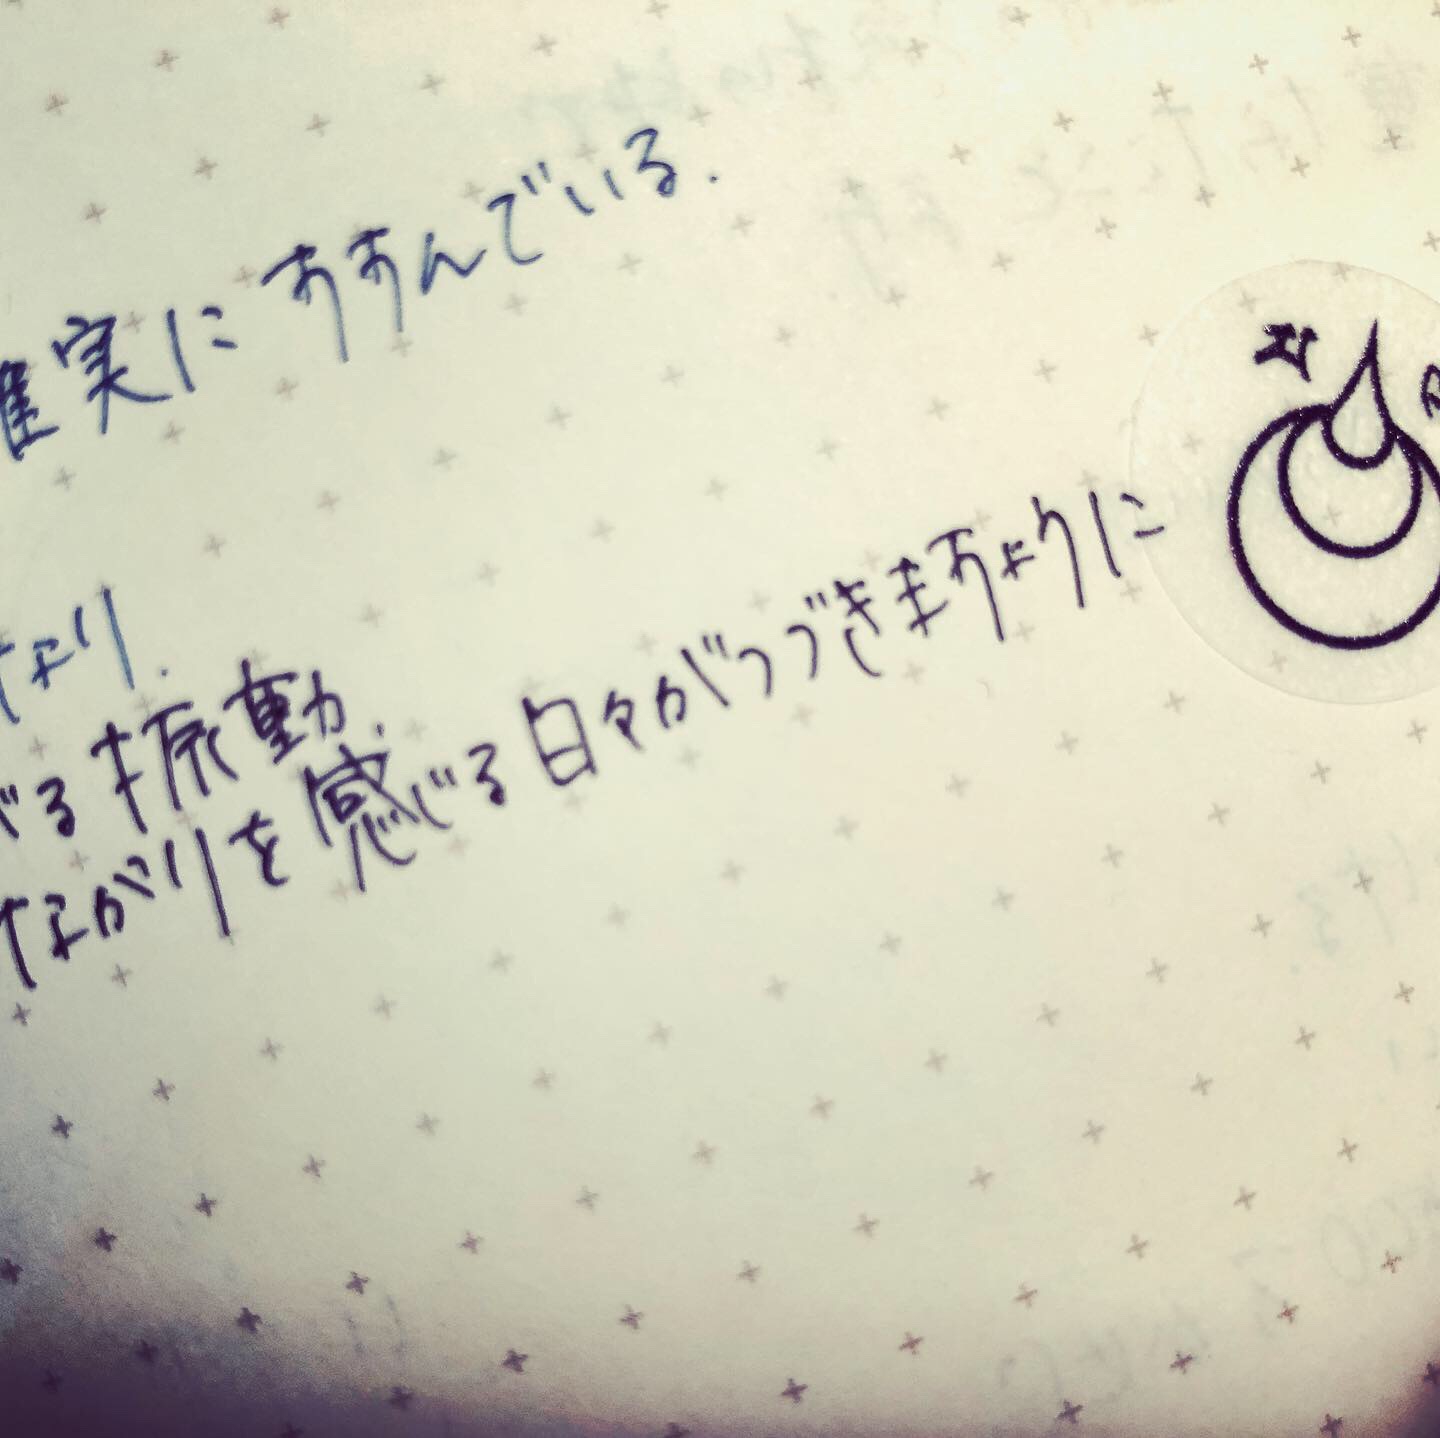 確実にすすんでいる.
なり.
る振動.
ながりを感じる日々がつづきますように